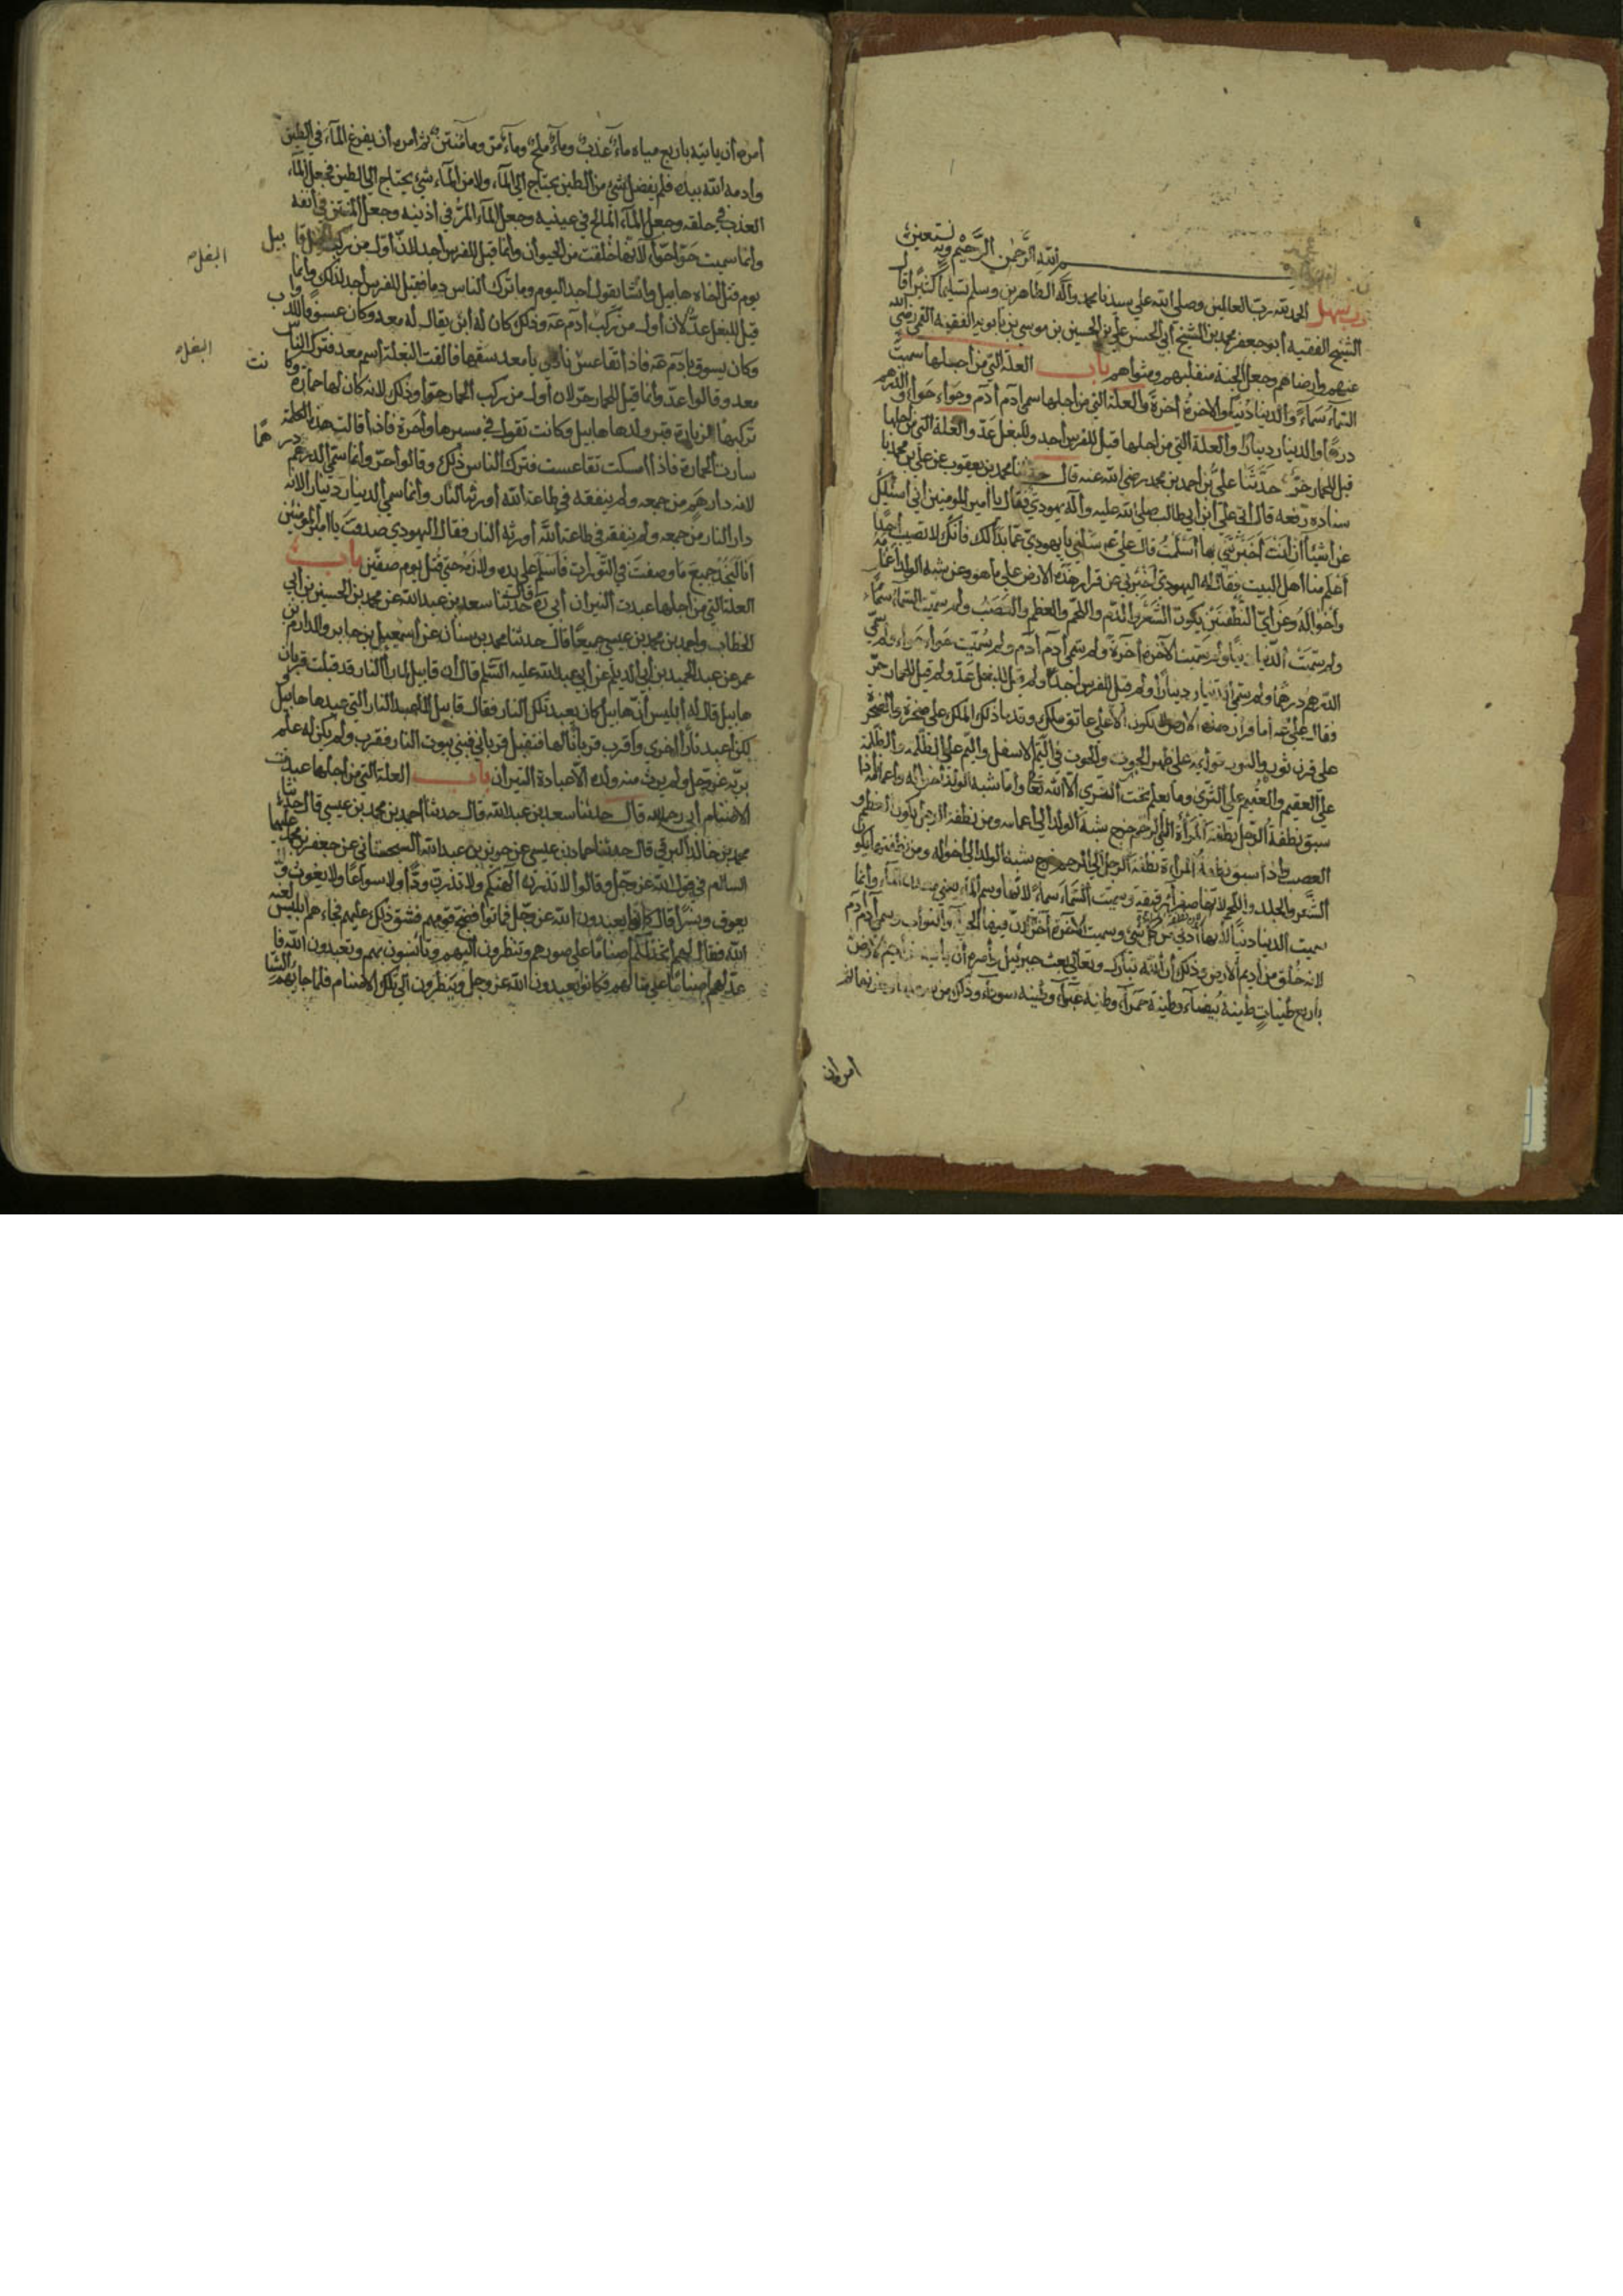 بسم الله الرحمن الرحيم وبه نستعين
الحمد لله رب العالمين وصلى الله على سيدنا محمد وآله الطاهرين وسلم تسليما كثيرا قال
الشيخ الفقيه أبو جعفر محمد بن الشيخ أبي الحسن علي بن الحسين بن موسى بن بابويه الفقيه القمي رضي الله
عنهم وأرضاهم وجعل الجنة منقلبهم ومثواهم باب العلة التي من أجلها سميت
السماء سماء والدنيا دنيا والآخرة آخرة والعلة التي من أجلها سمي آدم آدم وحواء حواء والدرهم
درهما والدينار دينارا والعلة التي من أجلها قيل للفرس أجد وللبغل عد والعلة التي من أجلها
قيل للحمار حر حدثنا علي بن أحمد بن محمد رضي الله عنه قال حدثنا محمد بن يعقوب عن علي بن محمد با
سناده رفعه قال أتى علي ابن أبي طالب صلى الله عليه وآله يهودي فقال يا أمير المومنين اني اسئلك
عن أشياء ان أنت أخبرتني بها أسلمت قال علي عم سلني يا يهودي عما بدا لك فانك لا تصيب أحدا
أعلم منا أهل البيت فقال له اليهودي أخبرني عن قرار هذه الارض على ما هو وعن شبه الولد أعمامه
وأخواله وعن أي النطفتين يكون الشعر والدم واللحم والعظم والعصب ولم سميت السماء سماء
ولم سميت الدنيا دنيا ولم سميت الآخرة آخرة ولم سمي آدم آدم ولم سميت حواء حواء ولم سمي
الدرهم درهما ولم سمي الدينار دينارا ولم قيل للفرس أجد ولم قيل للبغل عد ولم قيل للحمار حر
فقال علي عم أما قرار هذه الارض لا يكون الا على عاتق ملك وقدما ذلك الملك على صخرة والصخرة
على قرن ثور والثور قوائمه على ظهر الحوت والحوت في اليم الاسفل واليم على الظلمة والظلمة
على العقيم والعقيم على الثرى وما يعلم تحت الثرى الا الله تعالى وأما شبه الولد أخواله وأعمامه فاذا
سبق نطفة الرجل نطفة المرأة الى الرحم خرج شبه الولد الى أعمامه ومن نطفة الرجل يكون العظم و
العصب واذا سبق نطفة المرأة نطفة الرجل الى الرحم خرج شبه الولد الى أخواله ومن نطفتها يكون
الشعر والجلد واللحم لانها صفراء رقيقة وسميت السماء سماء لانها وسم الماء يعني معدن الماء وانما
سميت الدنيا دنيا لانها أدنى من كل شي وسميت الآخرة آخرة لان فيها الجزاء والثواب وسمي آدم آدم
لانه خلق من أديم الارض وذلك أن الله تبارك وتعالى بعث جبرئيل وأمره أن يأتيه من أديم الارض
باربع طينات طينة بيضاء وطينة حمراء وطينة غبراء وطينة سوداء وذلك من سهلها وحزنها ثم
امره ان
أمره أن ياتيه باربع مياه ماء عذب وماء ملح وماء مر وما منتن ثم أمره أن يفرغ الماء في الطين
وأدمه الله بيده فلم يفضل شي من الطين يحتاج الى الماء ولا من الماء شي يحتاج الى الطين فجعل الماء
العذب في حلقه وجعل الماء المالح في عينيه وجعل الماء المر في أذنيه وجعل المنتن في أنفه
وانما سميت حوا حوا لانها خلقت من الحيوان وانما قيل للفرس أجد لان أول من ركب الخيل قابيل
يوم قتل أخاه هابيل وأنشا يقول أجد اليوم وما ترك الناس دما فقيل للفرس أجد لذلك وانما
قيل للبغل عد لان أول من ركب آدم عم وذلك كان له أبن يقال له معد وكان عسوقا للدواب
وكان يسوق بادم عم فاذا تقاعس نادى يا معد سقها فالفت البغلة اسم معد فترك الناس
معد وقالوا عد وانما قيل للحمار حر لان أول من ركب الحمار حوا وذلك لانه كان لها حمارة وكانت
تركبها الزيارة قبر ولدها هابيل وكانت تقول في مسيرها واحرة فاذا قالت هذه الكلمة
سارت الحمارة فاذا امسكت تقاعست فترك الناس ذلك وقالوا حر وانما سمي الدرهم درهما
لانه دار هم من جمعه ولم ينفقه في طاعة الله أورثه النار وانما سمي الدينار دينارا لانه
دار النار من جمعه ولم ينفقه في طاعة الله أورثه النار فقال اليهودي صدقت يا أمير المومنين
انا لنجد جميع ما وصفت في التورات فاسلم على يده ولازمه حتى قتل يوم صفين باب
العلة التي من أجلها عبدت النيران أبي ره قال حدثنا سعد بن عبد الله عن محمد بن الحسين بن أبي
الخطاب واحمد بن محمد بن عيسى جميعا قال حدثنا محمد بن سنان عن اسمعيل بن جابر وكرام بن
عمرو عن عبد الحميد بن أبي الديلم عن أبي عبد الله عليه السلام قال ان قابيل لما رأى النار قد قبلت قربان
هابيل قال له ابليس ان هابيل كان يعبد تلك النار فقال قابيل لا أعبد النار التي عبدها هابيل
لكن أعبد نارا أخرى وأقرب قربانا لها فتقبل قرباني فبنى بيوت النار فقرب ولم يكن له علم
بربه عز وجل ولم يورث منه ولده الا عبادة النيران باب العلة التي من اجلها عبدت
الاصنام أبي رحمه الله قال حدثنا سعد بن عبد الله قال حدثنا أحمد بن محمد بن عيسى قال حدثنا
محمد بن خالد البرقي قال حدثنا حماد بن عيسى عن حريز بن عبد الله السجستاني عن جعفر بن محمد عليهما
السلام في قول الله عز وجل وقالوا لا تذرن آلهتكم ولا تذرن ودا ولا سواعا ولا يغوث و
يعوق ونسرا قال كانوا يعبدون الله عز وجل فماتوا فضج قومهم فشق ذلك عليهم فجاءهم ابليس لعنه
الله فقال لهم أتخذ لكم أصناما على صورهم وتنظرون اليهم وتانسون بهم وتعبدون الله فا
عد لهم اصناما على مثالهم فكانوا يعبدون الله عز وجل وينظرون الى تلك الاصنام فلما جاءهم الشتا
البغله
البغله